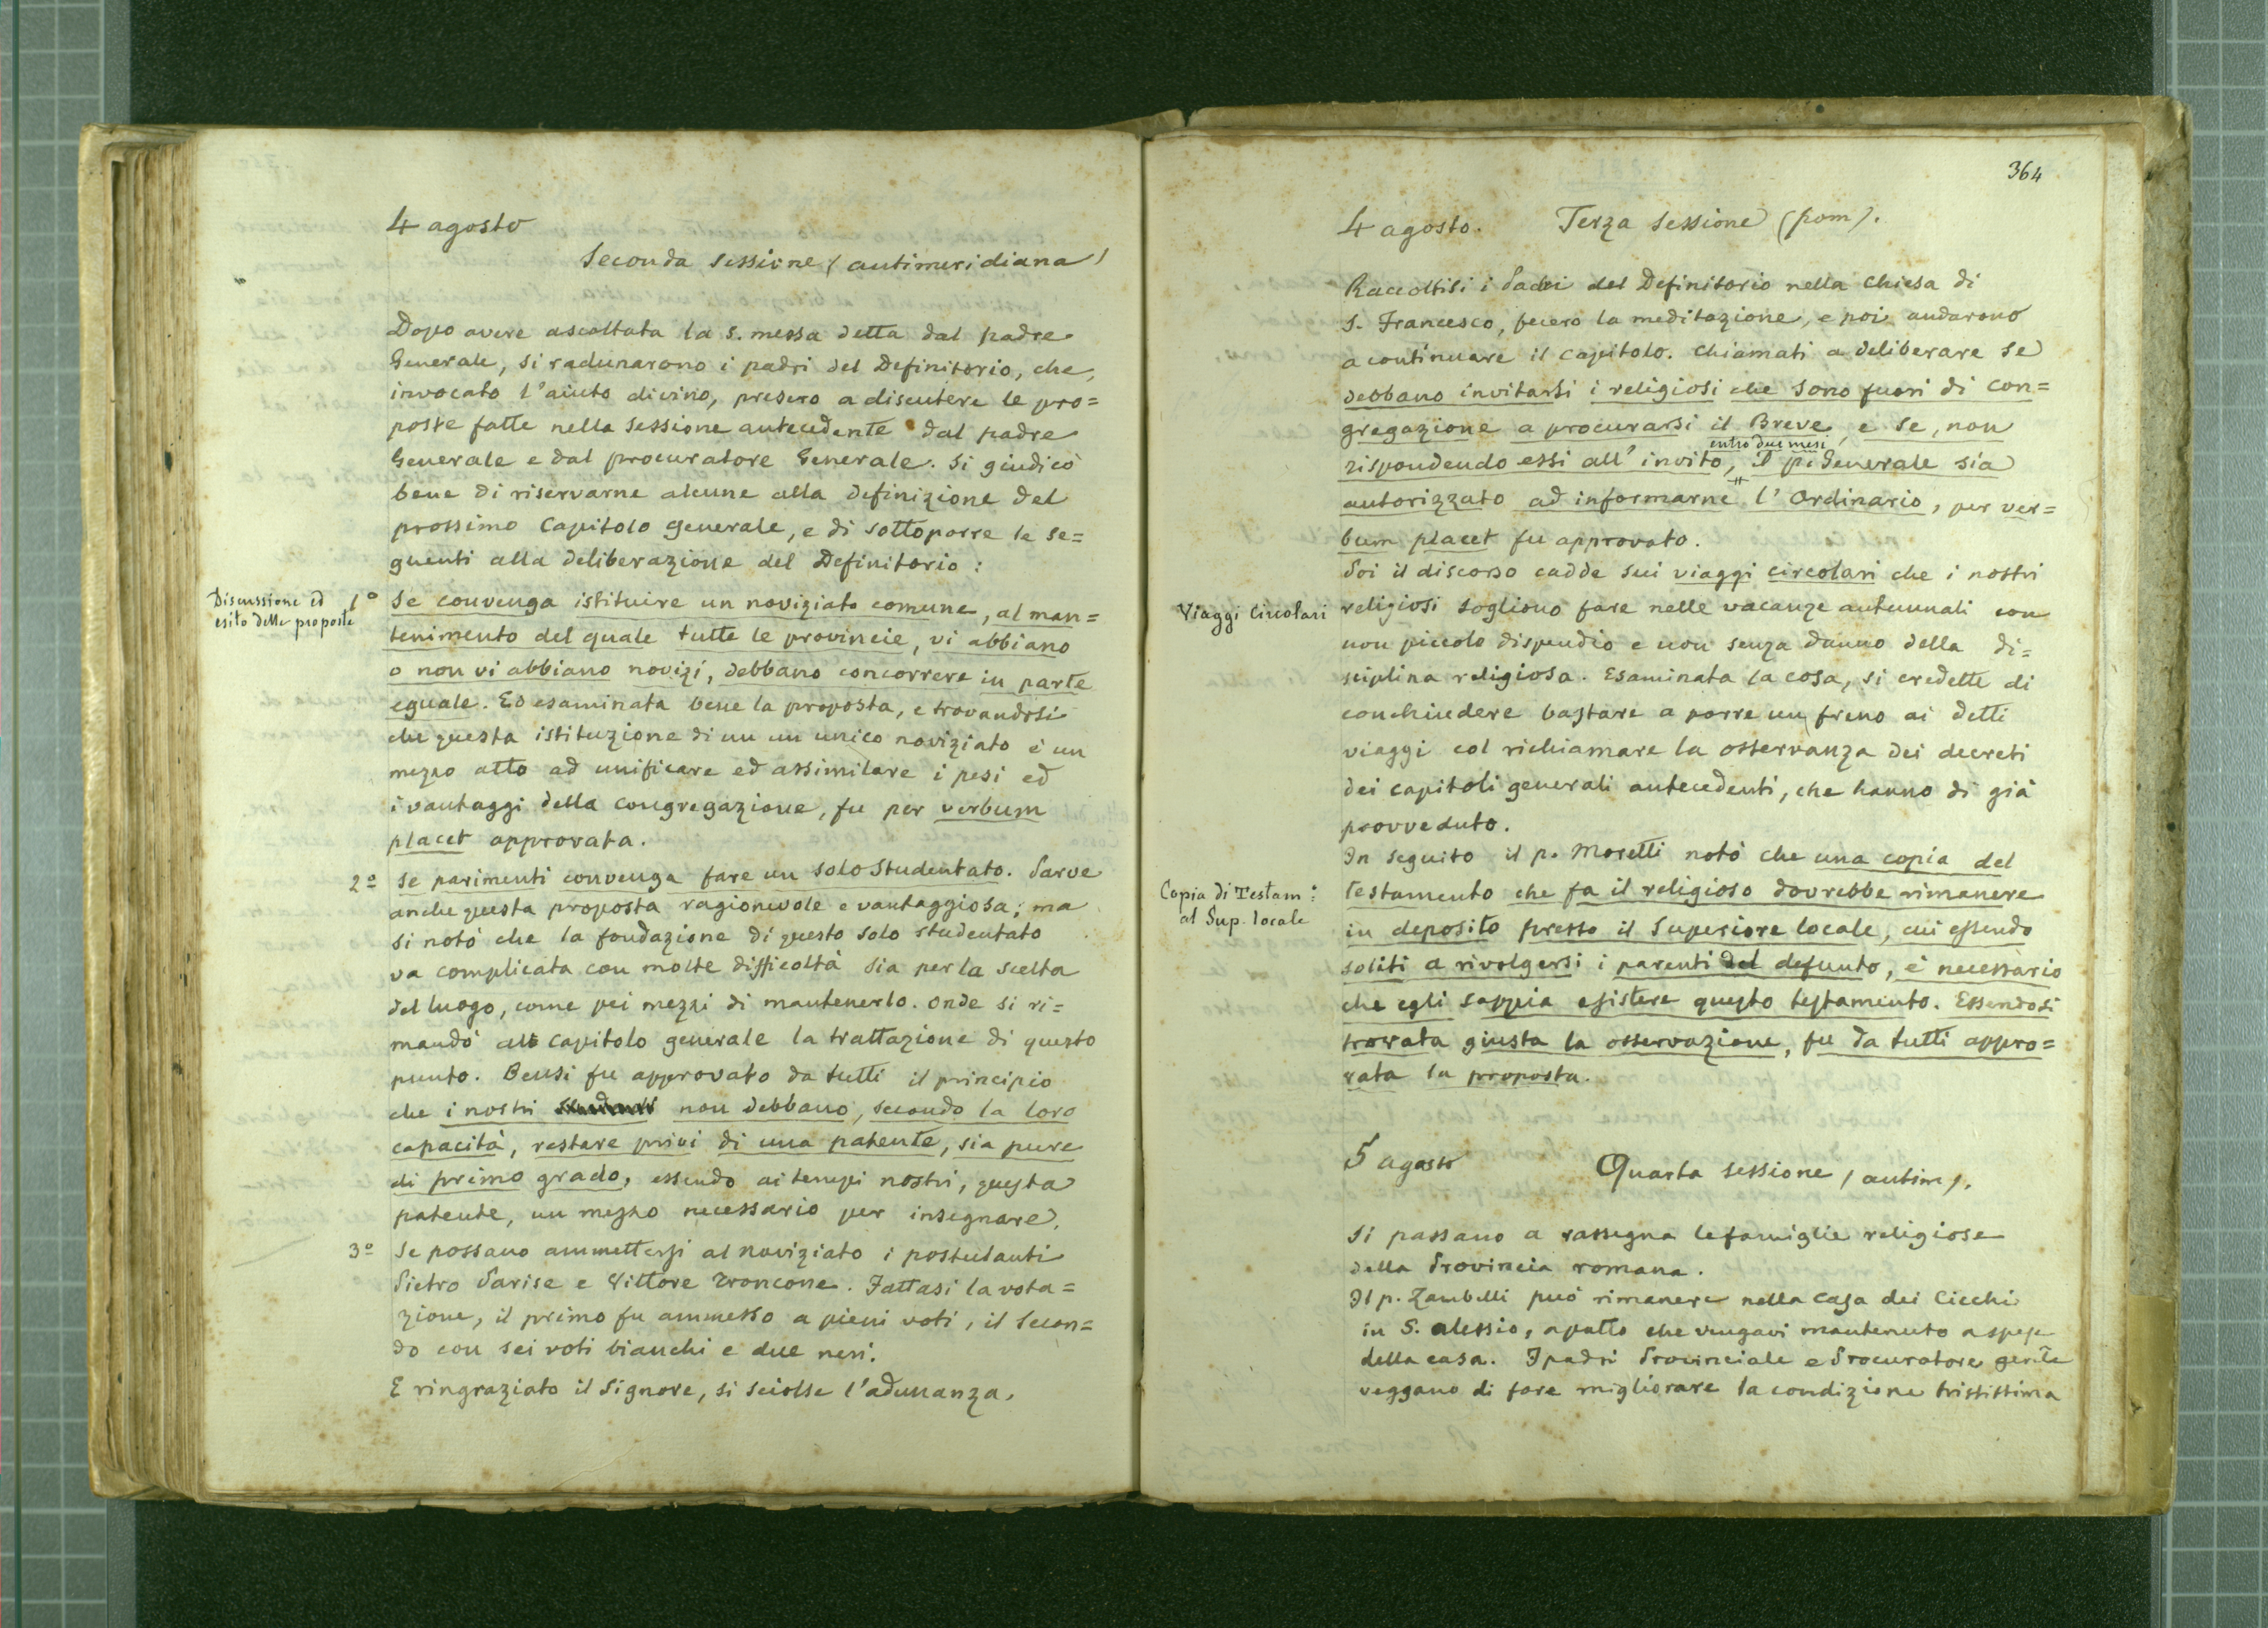 4 agosto
Seconda sessione (antimeridiana)
Dopo avere ascoltata la s. messa detta dal padre
Generale, si radunarono i padri del Definitorio, che,
invocato l'aiuto divino, presero a discutere le pro=
poste fatte nella sessione antecedente dal padre
Generale e dal procuratore Generale. Si giudicò
bene di riservarne alcune alla definizione del
prossimo Capitolo generale, e di sottoporre le se=
guenti alla deliberazione del Definitorio:
Discussione ed
esito delle proposte
1º Se convenga istituire un noviziato comune, al man=
tenimento del quale tutte le provincie, vi abbiano
o non vi abbiano novizi, debbano concorrere in parte
eguale. Ed esaminata bene la proposta, e trovandosi
che questa istituzione di un un unico noviziato è un
mezzo atto ad unificare ed assimilare i pesi ed
i vantaggi della congregazione, fu per verbum
placet approvata.
2º Se parimenti convenga fare un solo studentato. Parve
anche questa proposta ragionevole e vantaggiosa; ma
si notò che la fondazione di questo solo studentato
va complicata con molte difficoltà sia per la scelta
del luogo, come pei mezzi di mantenerlo. Onde si ri=
mandò al capitolo generale la trattazione di questo
punto. Bensì fu approvato da tutti il principio
che i nostri non debbano, secondo la loro
capacità, restare privi di una patente, sia pure
di primo grado, essendo ai tempi nostri, questa
patente, un mezzo necessario per insegnare.
3º Se possano ammettersi al noviziato i postulanti
Pietro Parise e Vittore Troncone. Fattasi la vota=
zione, il primo fu ammesso a pieni voti, il secon=
do con sei voti bianchi e due neri.
E ringraziato il Signore, si sciolse l'adunanza.
364
4 agosto. Terza sessione (pom).
Raccoltisi i Padri del Definitorio nella Chiesa di
S. Francesco, fecero la meditazione, e poi andarono
a continuare il capitolo. Chiamati a deliberare se
debbano invitarsi i religiosi che sono fuori di con=
gregazione a procurarsi il Breve, e se, non
entro due mesi
rispondendo essi all'invito, il p. Generale sia
autorizzato ad informarne l'Ordinario, per ver=
bum placet fu approvato.
Poi il discorso cadde sui viaggi circolari che i nostri
Viaggi Circolari
religiosi sogliono fare nelle vacanze autunnali con
non piccolo dispendio e non senza danno della di=
sciplina religiosa. Esaminata la cosa, si credette di
conchiudere bastare a porre un freno ai detti
viaggi col richiamare la osservanza dei decreti
dei capitoli generali antecedenti, che hanno di già
provveduto.
In seguito il p. Moretti notò che una copia del
Copia di Testam:
al Sup. locale
testamento che fa il religioso dovrebbe rimanere
in deposito presso il Superiore locale, cui essendo
soliti a rivolgersi i parenti del defunto, è necessario
che egli sappia esistere questo testamento. Essendosi
trovata giusta la osservazione, fu da tutti appro=
vata la proposta.
5 agosto
Quarta sessione (antim).
Si passano a rassegna le famiglie religiose
della Provincia romana.
Il p. Zambelli può rimanere nella casa dei Ciechi
in S. Alessio, a patto che vengavi mantenuto a spese
della casa. I padri Provinciale e Procuratore genle
veggano di fare migliorare la condizione tristissima